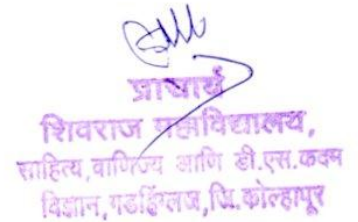 प्राचार्य
शिवराज महाविद्यालय,
साहित्य, वाणिज्य आणि डी.एस.कदम
विज्ञान, गडहिंग्लज, जि. कोल्हापूर